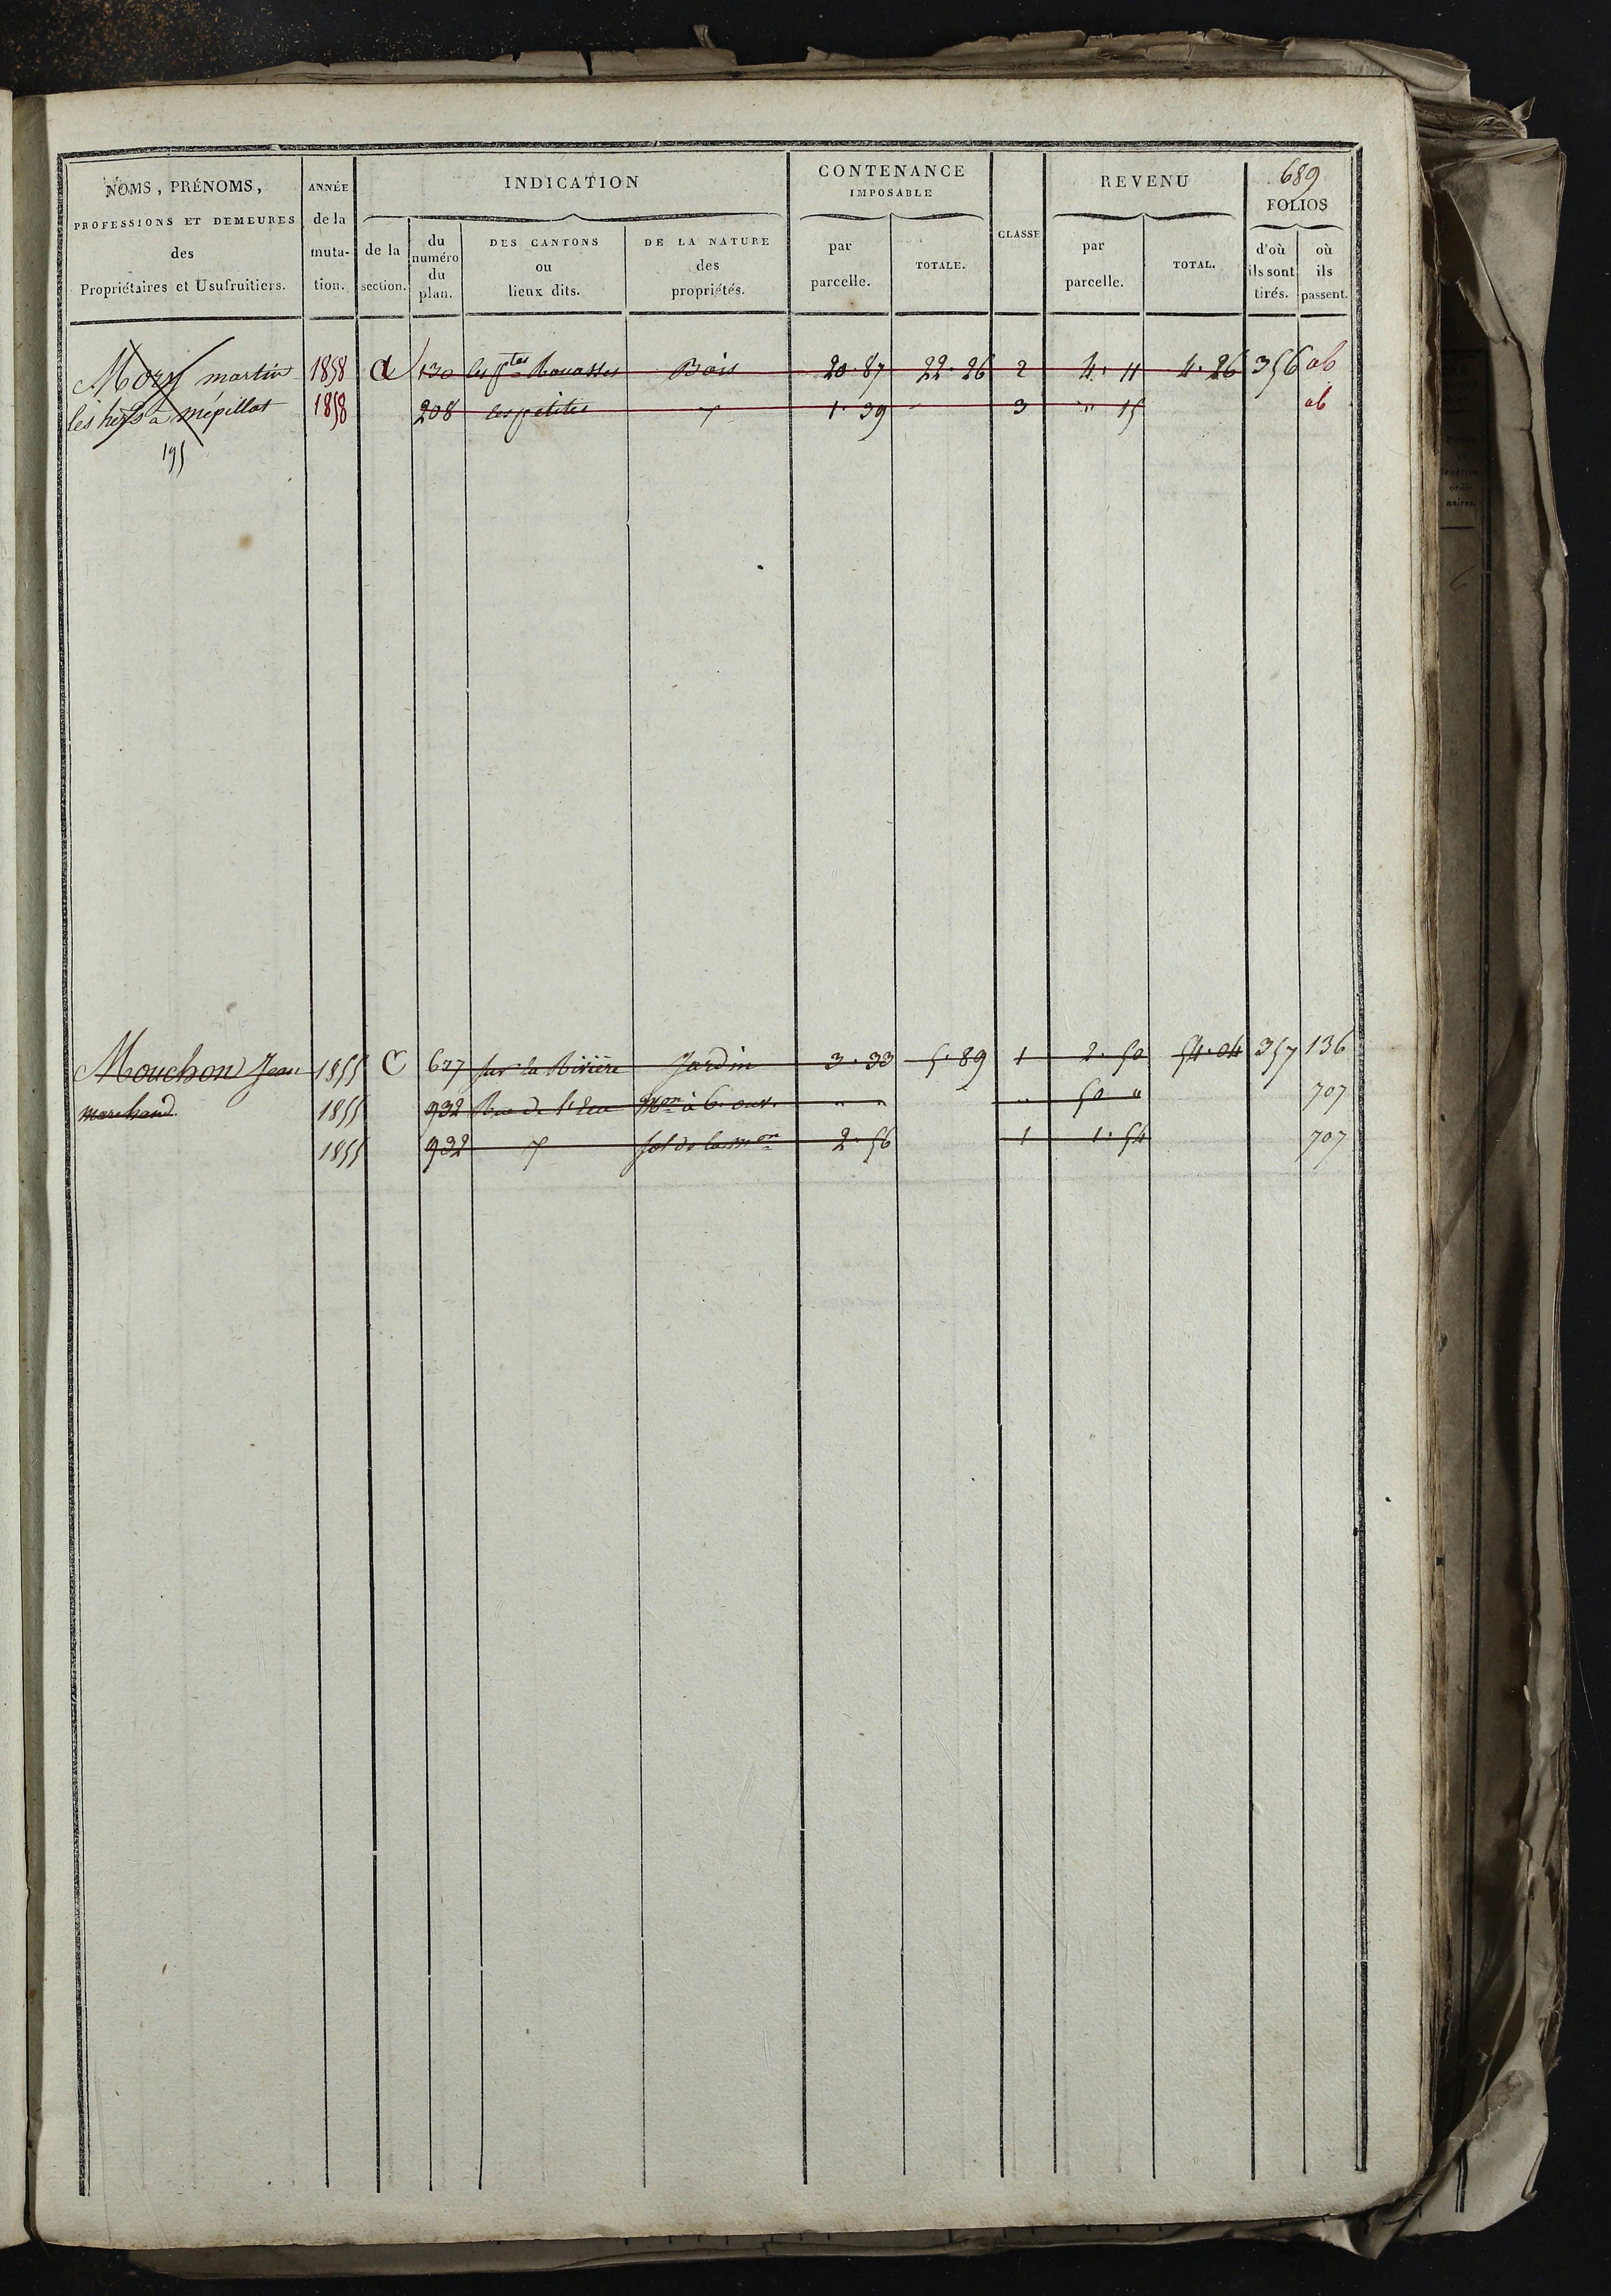 689
NOMS, PRÉNOMS, PROFESSIONS ET DEMEURES des Propriétaires et Usufruitiers.
ANNÉE de la muta-tion.
INDICATION
de la section.
du numéro du plan.
DES CANTONS ou lieux dits.
DE LA NATURE des propriétés.
CONTENANCE IMPOSABLE
par parcelle.
TOTALE.
CLASSE
REVENU
par parcelle.
TOTAL.
FOLIOS
d'où ils sont tirés.
où ils passent.
martin 1858 130 les ptes Bois 20.87 22.26 2 4.11 4.26 356 ab
les à mépillat 1858 208 les petites 1.39 3 " 15 ab
195
Mouchon Jean 1855 C 627 sur la Rivière Jardin 3.33 5.89 1 2.50 54.04 357 136
marchand 1855 932 Rue de Mon à 6 ouv. " " " 50 " 707
1855 932 sol de la mon 2.56 1 1.54 707